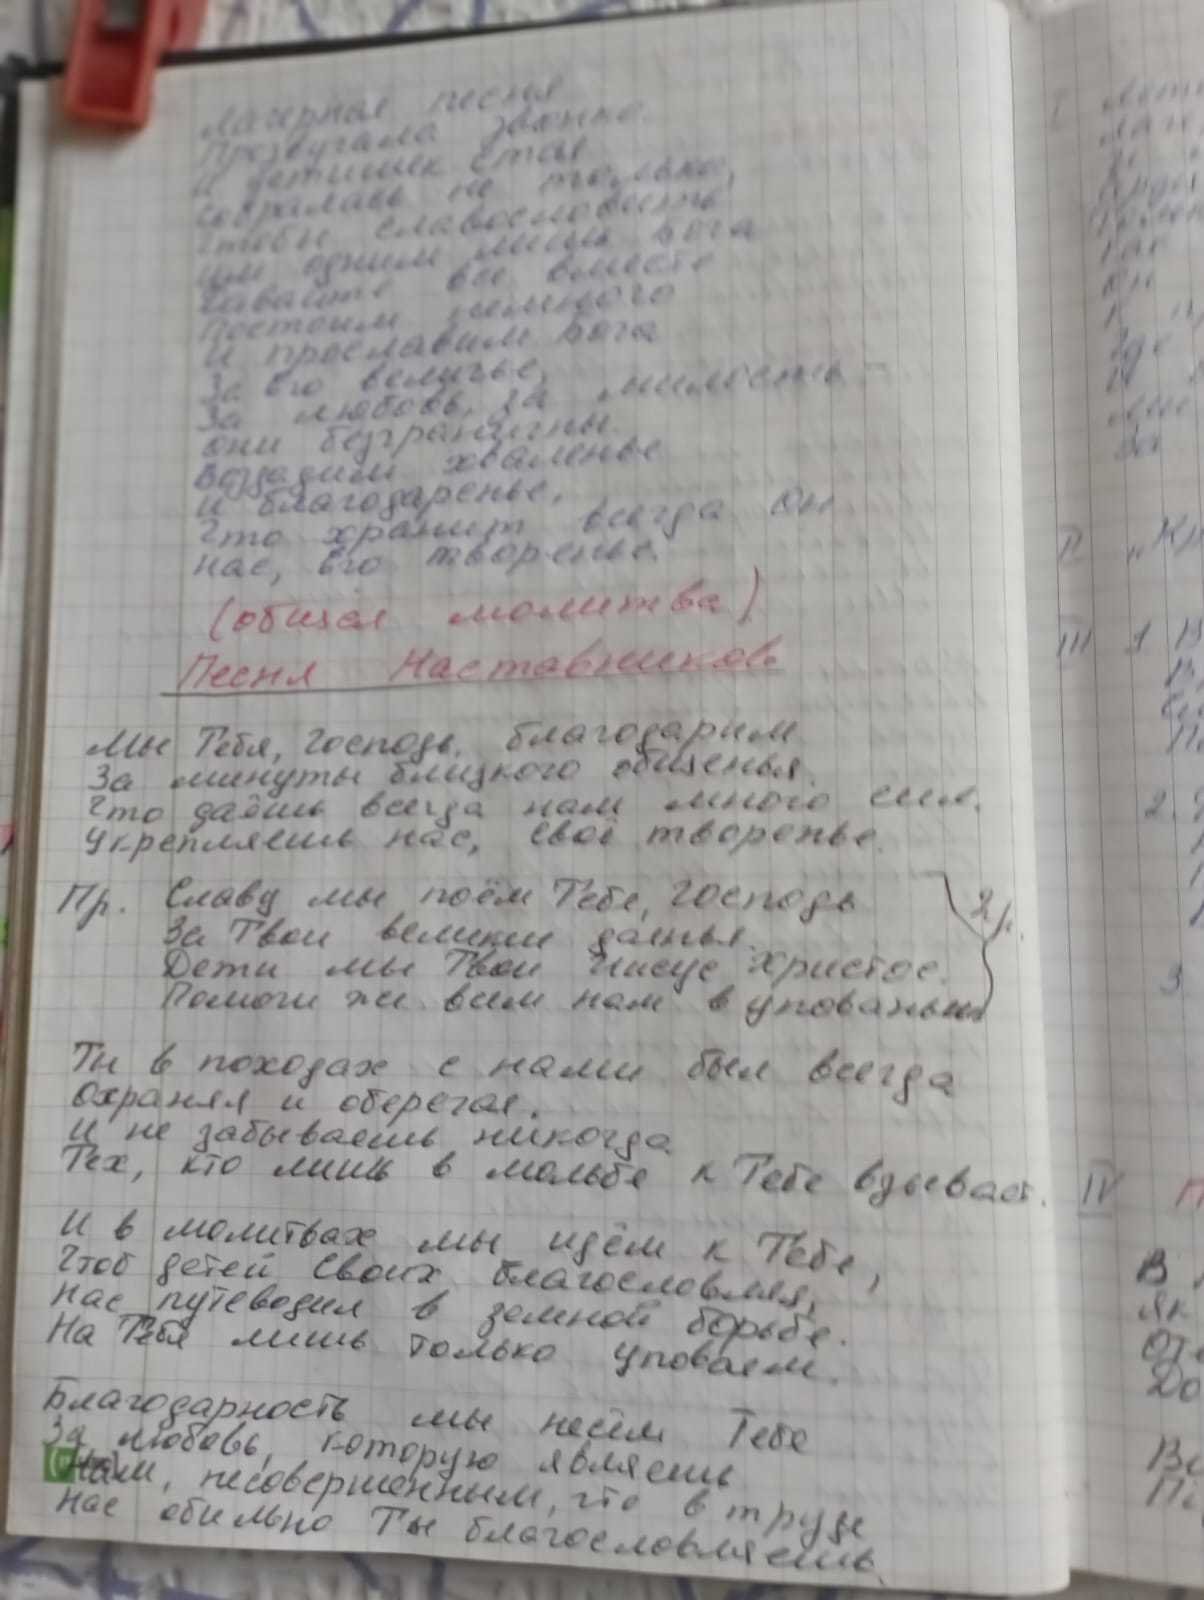 Лагерная песня
Прозвучала звонко.
И детишек стая
Собралась не только,
Чтобы славословить
Им одним лишь Бога
Давайте все вместе
Постоим немного
И прославим Бога
За Его величье,
За любовь, за милость -
Они безграничны.
Воздадим хваленье
И благодаренье,
Что хранит всегда Он
Нас, Его творенье.
(общая молитва)
Песня Наставников
Мы Тебя, Господь, благодарим
За минуты близкого общенья.
Что даёшь всегда нам много сил.
Укрепляешь нас, своё творенье.
Пр. Славу мы поём Тебе, Господь
За Твои великие даянья.
Дети мы Твои Иисус Христос.
Помоги же всем нам в упованьи
2р.
Ты в походах с нами был всегда
Охранял и оберегал.
И не забываешь никогда
Тех, кто лишь в мольбе к Тебе взывает.
И в молитвах мы идём к Тебе,
Чтоб детей Своих благословлял,
Нас путеводил в земной борьбе.
На Тебя лишь только уповаем.
Благодарность мы несём Тебе
За любовь, которую являешь
Нам, несовершенным, что в труде
Нас обильно Ты благословляешь.
II
III 1
2.
3
IV